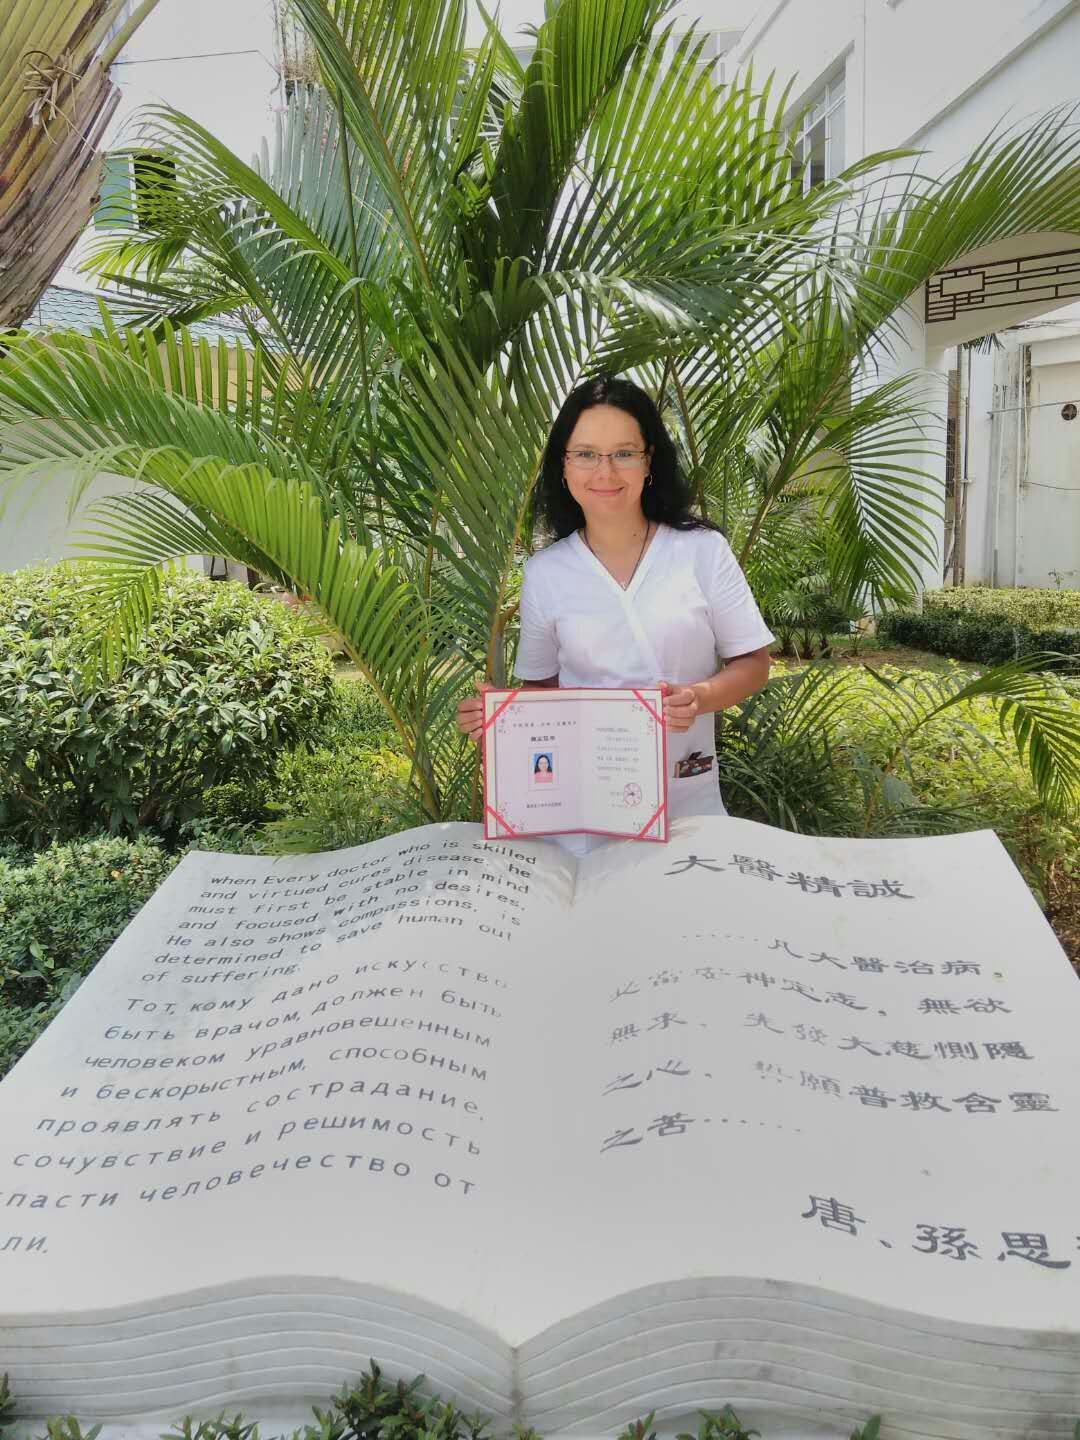 when Every doctor who is skilled
and virtued cures disease, he
must first be stable in mind
and focused with no desires.
He also shows compassions, is
determined to save human out
of suffering.
Тот, кому дано искусство
быть врачом, должен быть
человеком уравновешенным
и бескорыстным, способным
проявлять сострадание,
сочувствие и решимость
пасти человечество от
ли.
大醫精誠
……凡大醫治病，
必當安神定志，無欲
無求，先發大慈惻隱
之心，誓願普救含靈
之苦……
唐、孫思